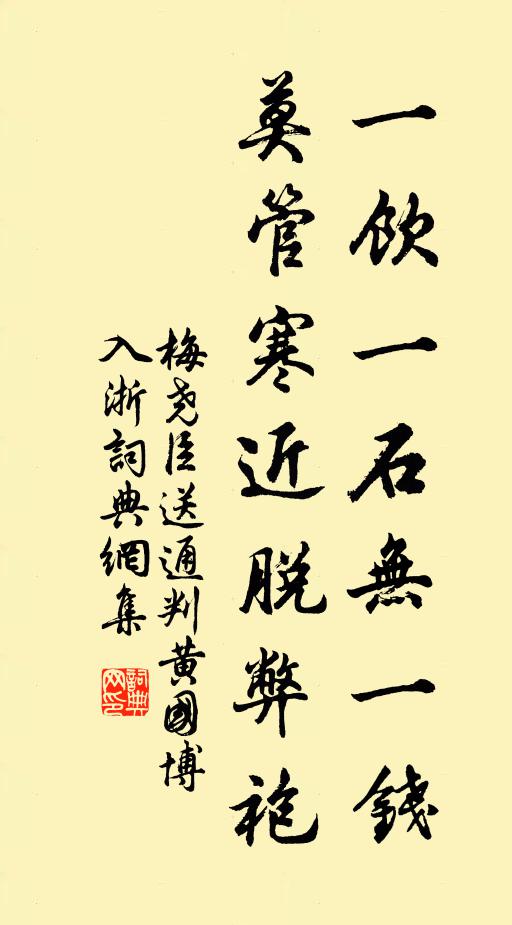 一飲一石無一錢
莫管寒近脫弊袍
梅尧臣送通判黄國博
入浙詞典網集
詞典网印